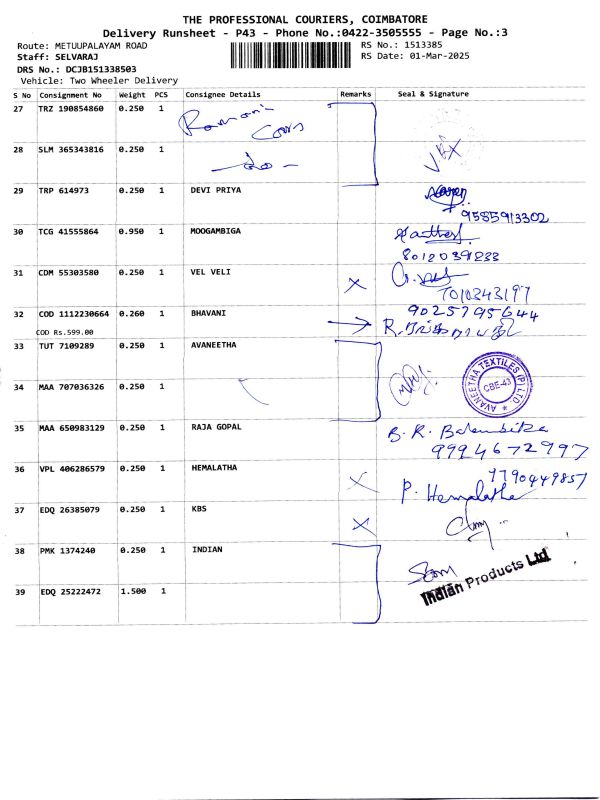 THE PROFESSIONAL COURIERS, COIMBATORE
Delivery Runsheet - P43 - Phone No.:0422-3505555 - Page No.:3
Route: METUUPALAYAM ROAD
RS No.: 1513385
Staff: SELVARAJ
RS Date: 01-Mar-2025
DRS No.: DCJB151338503
Vehicle: Two Wheeler Delivery
S No Consignment No Weight PCS Consignee Details Remarks Seal & Signature
27 TRZ 190854860 0.250 1
28 SLM 365343816 0.250 1 -do-
29 TRP 614973 0.250 1 DEVI PRIYA
9585913302
30 TCG 41555864 0.950 1 MOOGAMBIGA
80120391233
31 CDM 55303580 0.250 1 VEL VELI
7010343197
32 COD 1112230664 0.260 1 BHAVANI 9025795644
COD Rs.599.00
33 TUT 7109289 0.250 1 AVANEETHA
AVANEETHA TEXTILES (P) LTD. CBE-43
34 MAA 707036326 0.250 1
35 MAA 650983129 0.250 1 RAJA GOPAL B. R. Balambika
9994672997
36 VPL 406286579 0.250 1 HEMALATHA 9790449857
P. Hemalatha
37 EDQ 26385079 0.250 1 KBS
38 PMK 1374240 0.250 1 INDIAN
Indian Products Ltd
39 EDQ 25222472 1.500 1